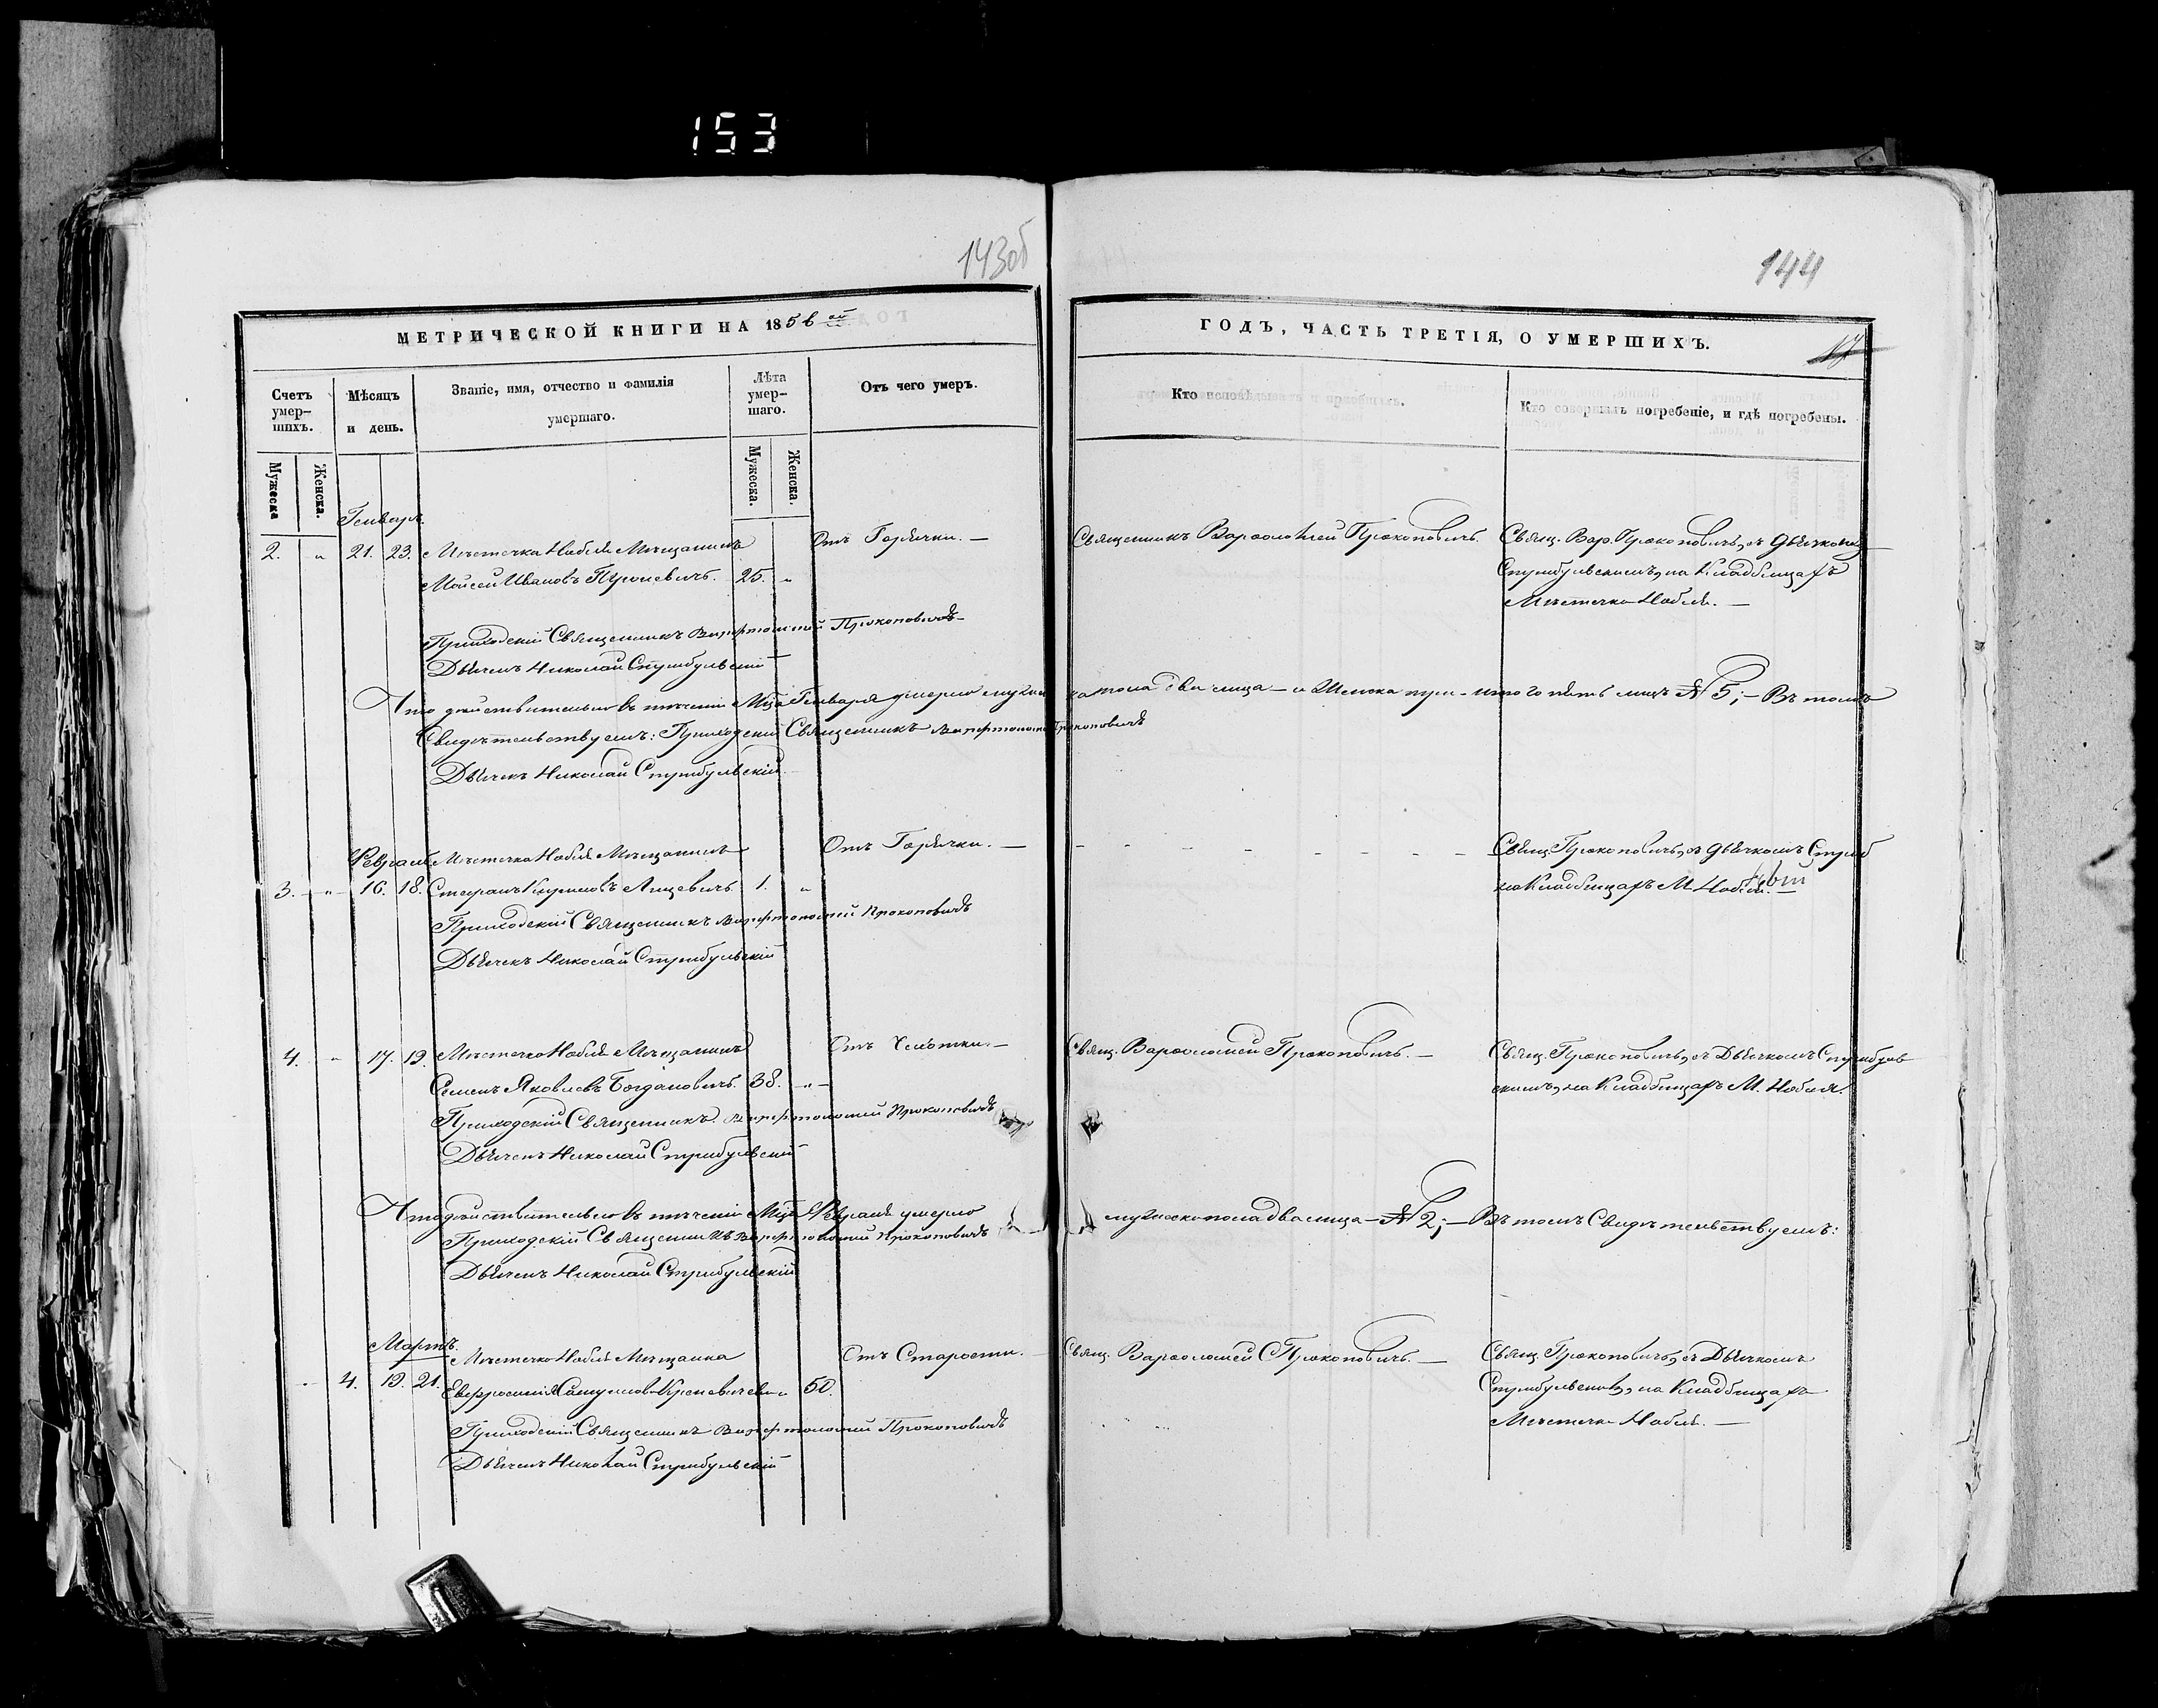 153
143об
144
МЕТРИЧЕСКОЙ КНИГИ НА 1856 ой
ГОДЪ, ЧАСТЬ ТРЕТІЯ, О УМЕРШИХЪ.
Счетъ умер-
шихъ.
Мѣсяцъ
и день.
Званіе, имя, отчество и фамилія
умершаго.
Лѣта
умер-
шаго.
Отъ чего умеръ.
Кто исповѣдывалъ и пріобщалъ.
Кто совершалъ погребеніе, и гдѣ погребены.
Мужеска
Женска.
Мужеска.
Женска.
Генварь.
2. „ 21. 23. Мѣстечка Нобля Мѣщанинъ Отъ Горячки. — Священникъ Варѳоломей Прокоповичъ. Свящ. Вар. Прокоповичъ, съ Дьячкомъ
Мойсей Ивановъ 25. „ Стрибульскимъ, на Кладбищахъ
Мѣстечка Нобля. —
Приходскій Священникъ Варфоломей Прокоповичъ
Дьячекъ Николай Стрибульскій
Что дѣйствительно въ теченіи Мца Генваря умерло мужеска пола два лица — и Женска три — итого пять лицъ № 5; — Въ томъ
Свидѣтельствуемъ: Приходскій Священникъ Варфоломей Прокоповичъ
Дьячекъ Николай Стрибульскій
Февраль Мѣстечка Нобля Мѣщанинъ Отъ Горячки. — Свящ. Прокоповичъ, съ Дьячкомъ Стриб
3. „ 16. 18. Стефанъ Кириловъ Лицевичъ 1. „ на Кладбищахъ М. Нобля.
Приходскій Священникъ Варфоломей Прокоповичъ
Дьячекъ Николай Стрибульскій
4. „ 17. 19. Мѣстечка Нобля Мѣщанинъ Отъ — Свящ. Варѳоломей Прокоповичъ. — Свящ. Прокоповичъ, съ Дьячкомъ Стрибуль
Семенъ Яковлевъ Богдановичъ. 38. „ скимъ, на Кладбищахъ М. Нобля.
Приходскій Священникъ Варфоломей Прокоповичъ
Дьячекъ Николай Стрибульскій
Что дѣйствительно въ теченіи Мца Февраля умерло мужеска пола два лица — № 2; — Въ томъ Свидѣтельствуемъ:
Приходскій Священникъ Варфоломей Прокоповичъ
Дьячекъ Николай Стрибульскій
Мартъ.
Мѣстечка Нобля Мѣщанка Отъ Старости. — Свящ. Варѳоломей Прокоповичъ. — Свящ. Прокоповичъ, съ Дьячкомъ
„ 4. 19. 21. Евфросинія Самуилова „ 50. на Кладбищахъ
Мѣстечка Нобля. —
Приходскій Священникъ Варфоломей Прокоповичъ
Дьячекъ Николай Стрибульскій